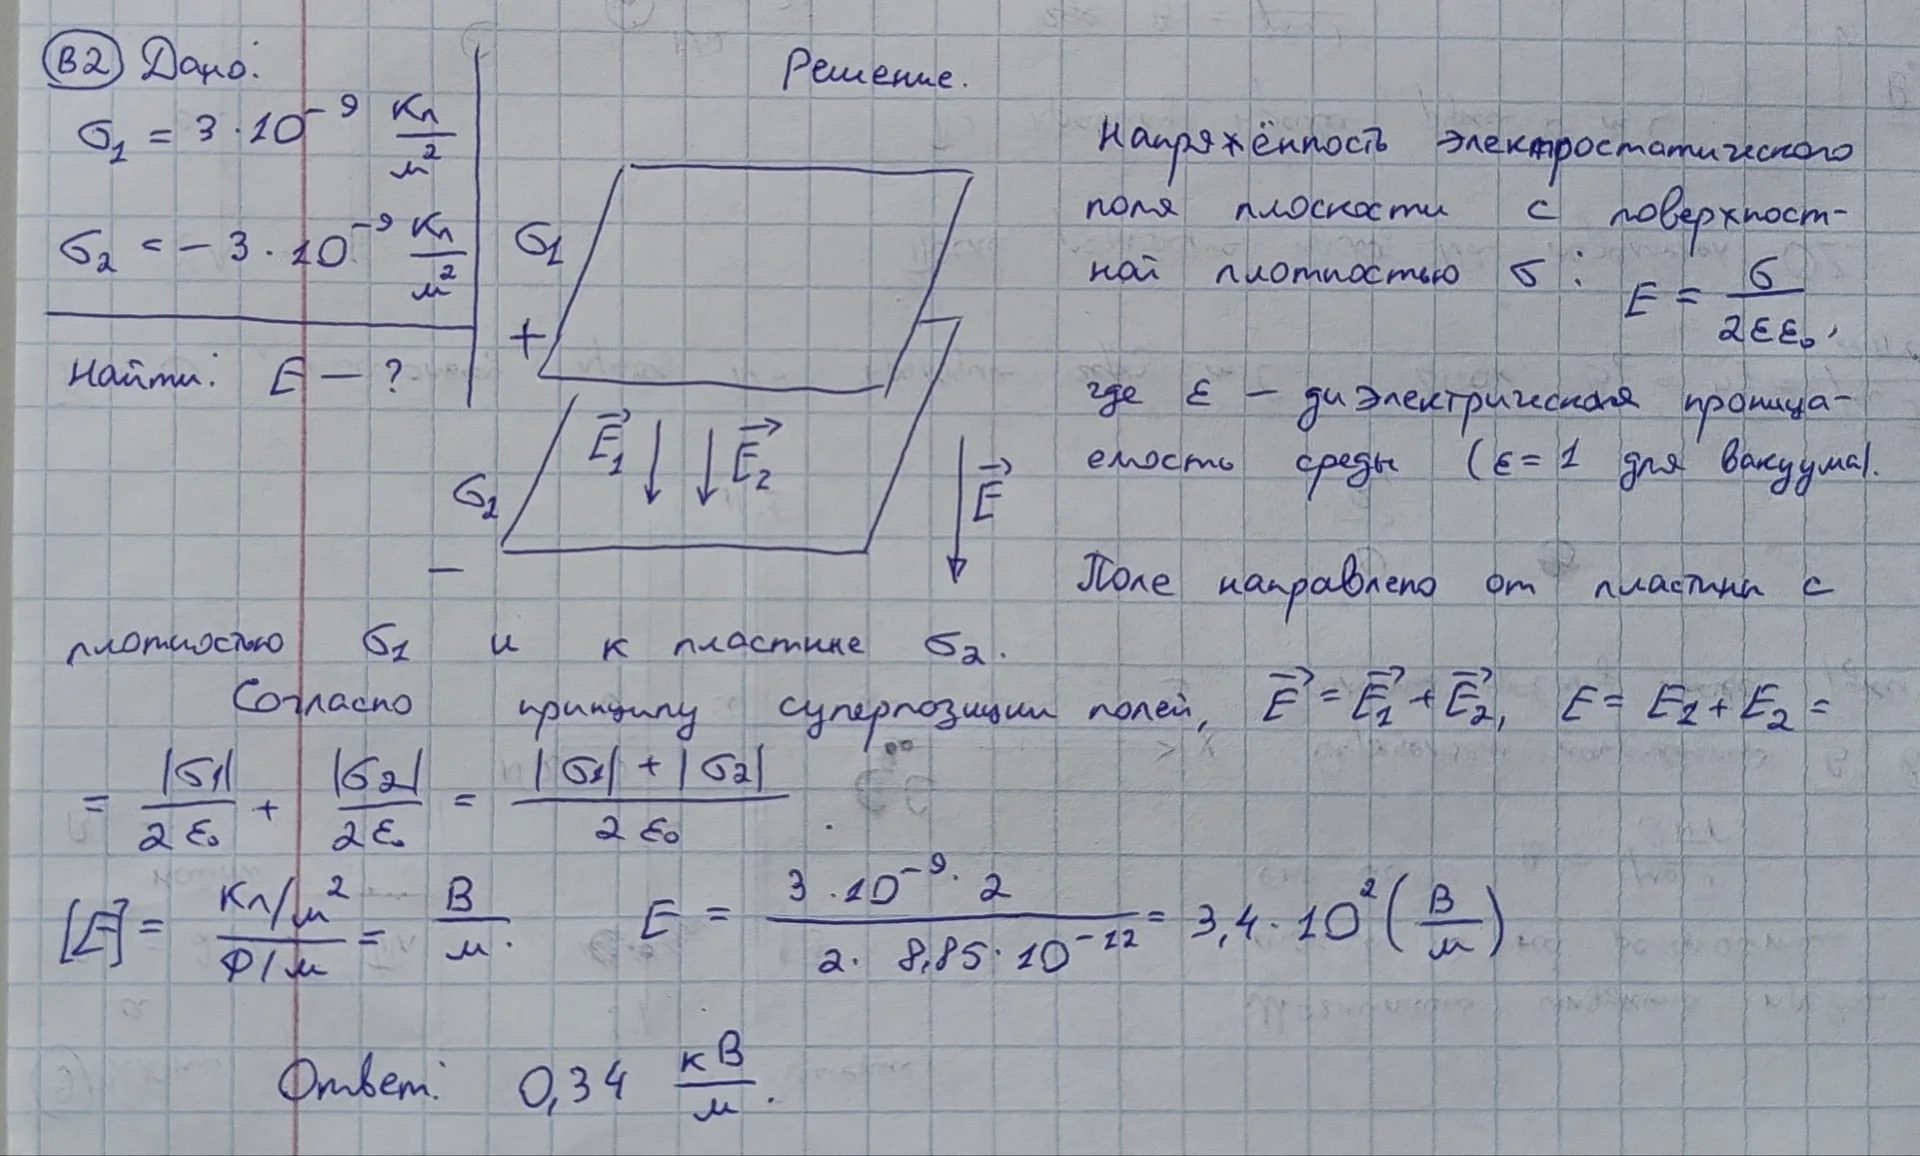 В2 Дано:
σ₁ = 3 · 10⁻⁹ Кл/м²
σ₂ = - 3 · 10⁻⁹ Кл/м²
Найти: E — ?
Решение.
σ₁
+
E⃗₁ E⃗₂
σ₂
E⃗
−
Напряжённость электростатического
поля плоскости с поверхност-
ной плотностью σ : E = σ/(2εε₀),
где ε — диэлектрическая проница-
емость среды (ε = 1 для вакуума).
Поле направлено от пластины с
плотностью σ₁ и к пластине σ₂.
Согласно принципу суперпозиции полей, E⃗ = E⃗₁ + E⃗₂, E = E₁ + E₂ =
= |σ₁|/(2ε₀) + |σ₂|/(2ε₀) = (|σ₁| + |σ₂|)/(2ε₀).
[E] = (Кл/м²)/(Ф/м) = В/м. E = (3 · 10⁻⁹ · 2)/(2 · 8,85 · 10⁻¹²) = 3,4 · 10² (В/м)
Ответ: 0,34 кВ/м.